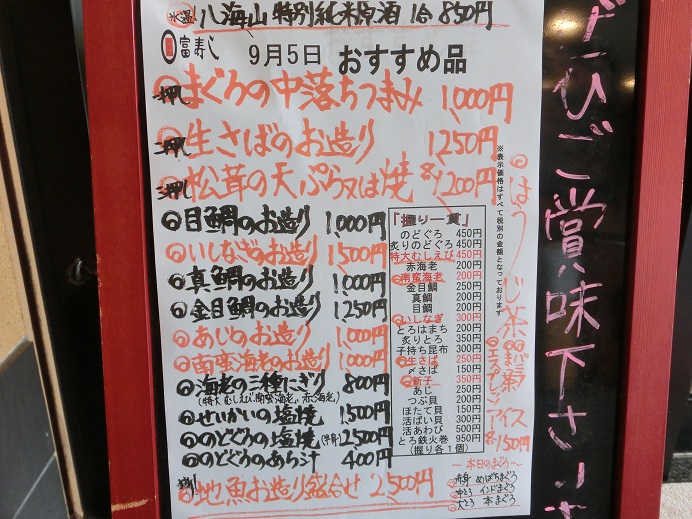 氷温 八海山 特別純米原酒 1合 850円
富寿し 9月5日 おすすめ品
一押し まぐろの中落ちつまみ 1,000円
二押し 生さばのお造り 1,250円
三押し 松茸の天ぷら又は焼 各1,200円
目鯛のお造り 1,000円
いしなぎのお造り 1,500円
真鯛のお造り 1,000円
金目鯛のお造り 1,250円
あじのお造り 1,000円
南蛮海老のお造り 1,000円
海老の三種にぎり 800円
(特大むしえび、南蛮海老、赤海老)
せいかいの塩焼 1,500円
のどぐろの塩焼(半身) 2,500円
のどぐろのあら汁 400円
地魚お造り盛合せ 2,500円
「握り一貫」
のどぐろ 450円
炙りのどぐろ 450円
特大むしえび 450円
赤海老 200円
南蛮海老 200円
金目鯛 250円
真鯛 200円
目鯛 200円
いしなぎ 300円
とろはまち 200円
炙りとろ 350円
子持ち昆布 300円
生さば 250円
〆さば 150円
新子 350円
あじ 250円
つぶ貝 200円
ほたて貝 150円
活ばい貝 300円
活あわび 500円
とろ鉄火巻 950円
(握り各1個)
※表示価格はすべて税別の金額となっております
～本日のまぐろ～
赤身 めばちまぐろ
中とろ インドまぐろ
大とろ 本まぐろ
ほうじ茶
エスプレッソ
アイス
各150円
ぜひご賞味下さいませ